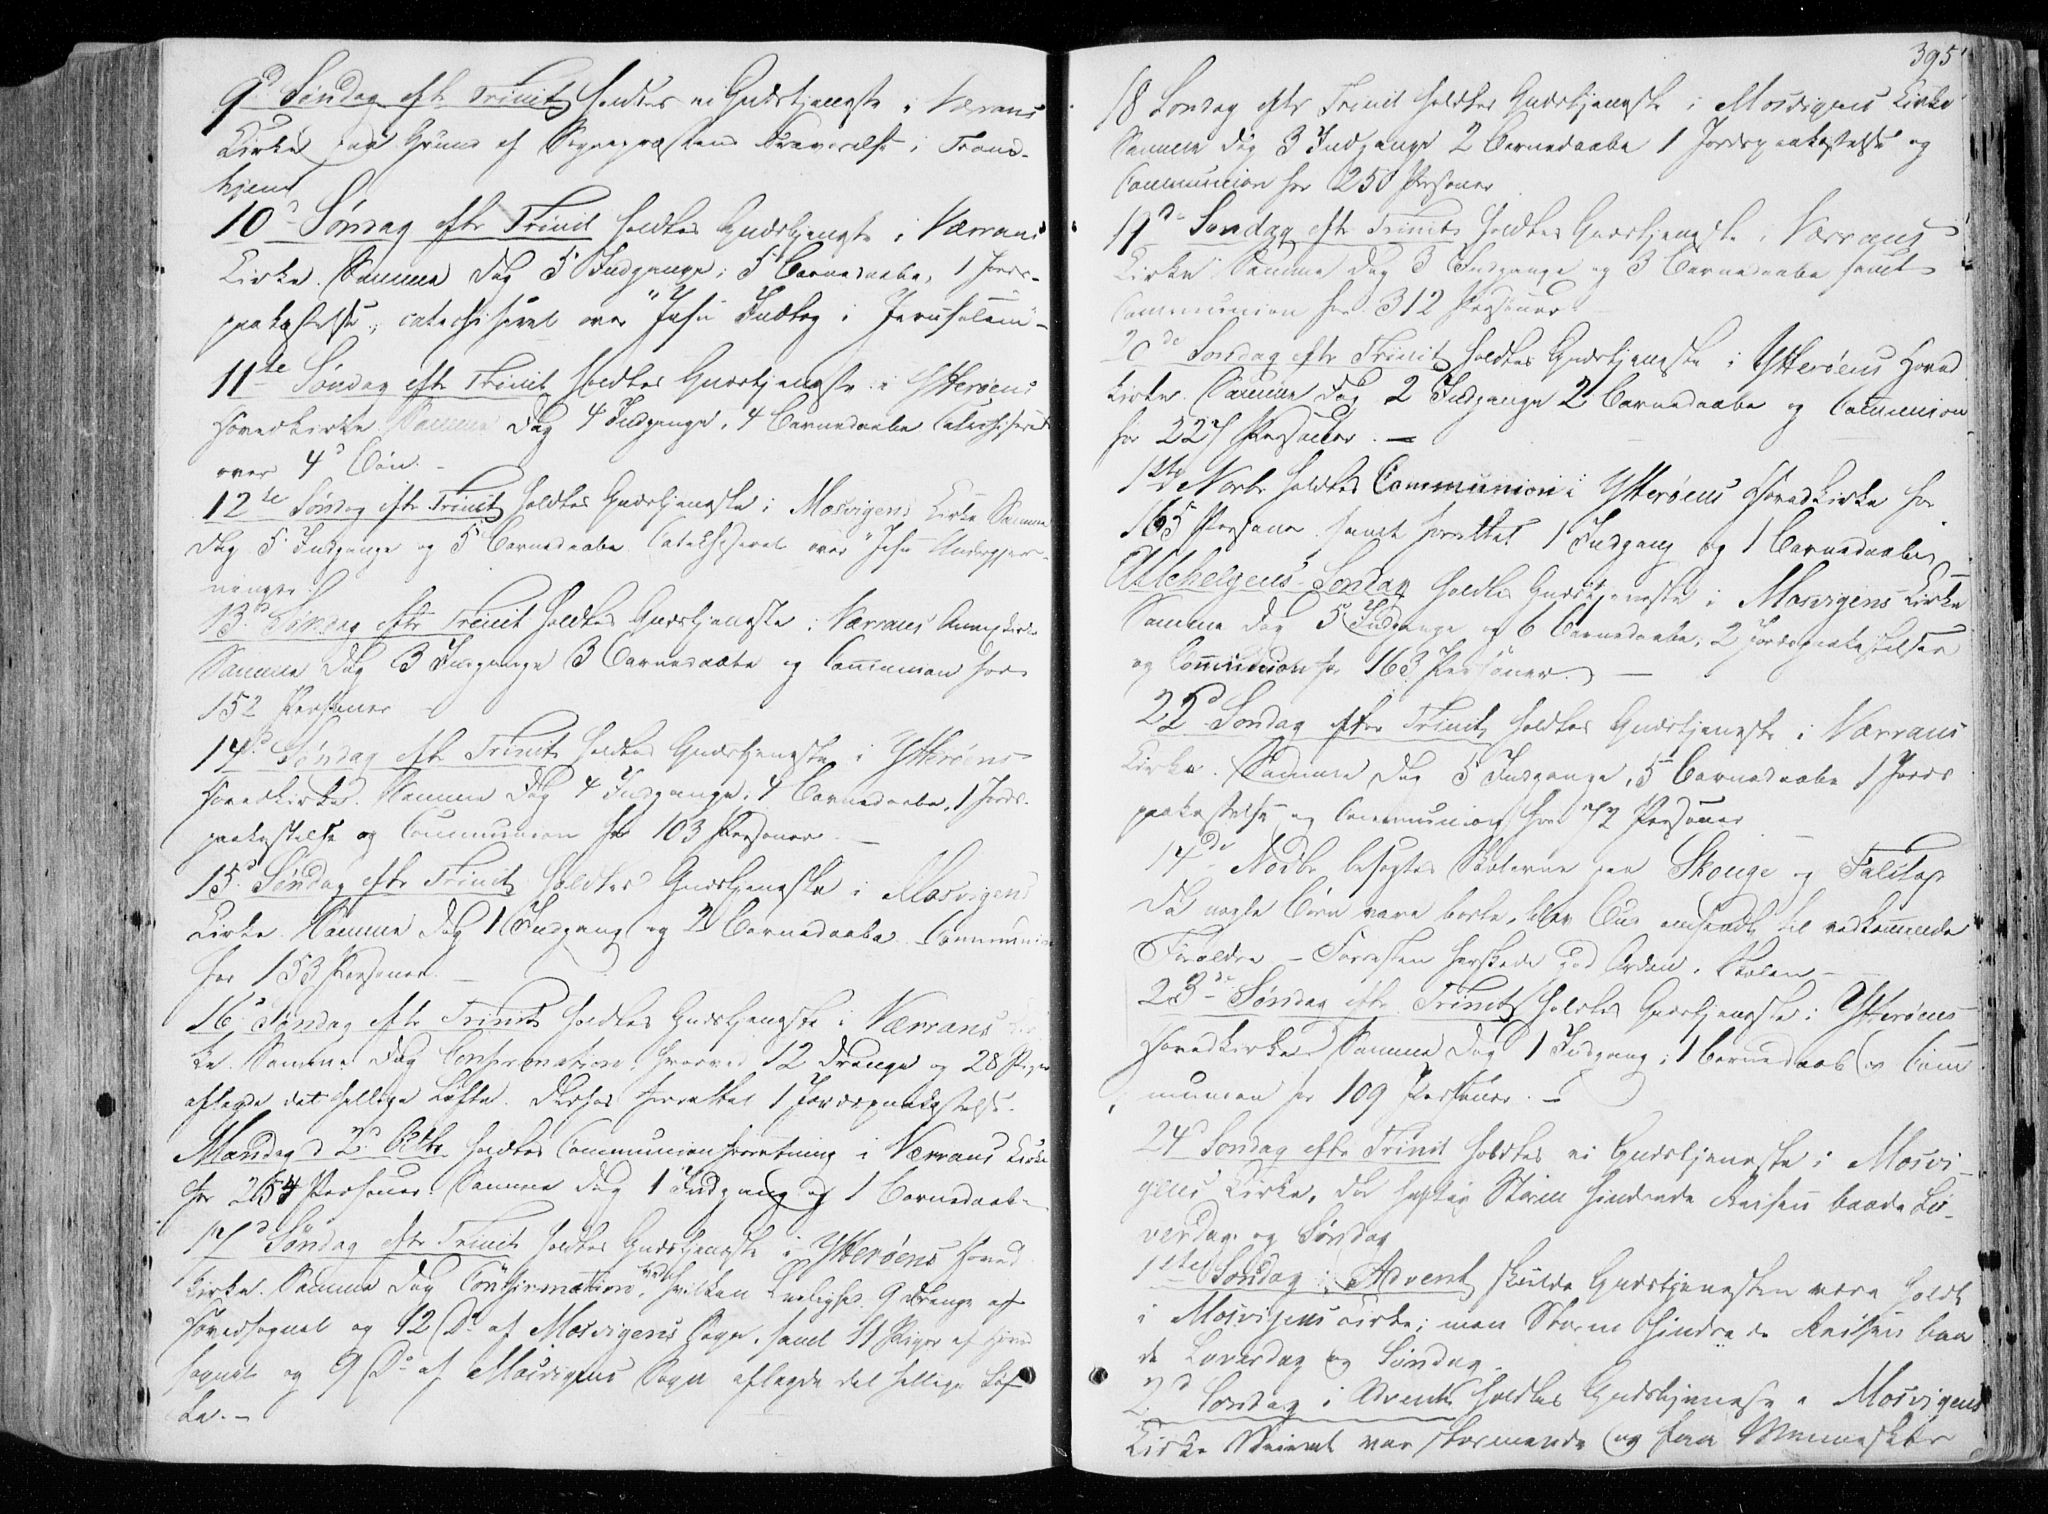 9d Søndag efter Trinit holdtes ei Gudstjeneste i Værrans
Kirke paa Grund af Sognepræstens Fraværelse i Trond-
hjem
10d Søndag efter Trinit holdtes Gudstjengte i Værrans
Kirke. Samme Dag 5 Indgange, 5 Barnedaabe, 1 Jords-
paakastelse, catechiseret over "Jesu Indtog i Jerusalem" –
11te Søndag efter Trinit holdtes Gudstjeneste i Ytterøens
Hovedkirke. Samme Dag 4 Indgange, 4 Barnedaabe Catechiseret
over 4d Bøn. –
12te Søndag efter Trinit holdtes Gudstjeneste i Mosvigens Kirke Samme
Dag 5 Indgange og 5 Barnedaabe. Catechiseret over "Jesu Undergjer-
ninger"
13d Søndag efter Trinit holdtes Gudstjeneste i Værrans Annexkirke
Samme Dag 3 Indgange 3 Barnedaabe og Communion for
152 Personer –
14d Søndag efter Trinit holdtes Gudstjeneste i Ytterøens
Hovedkirke. Samme Dag 4 Indgange, 4 Barnedaabe, 1 Jords-
paakastelse og Communion for 103 Personer –
15d Søndag efter Trinit holdtes Gudstjeneste i Mosvigens
Kirke. Samme Dag 1 Indgang og 2 Barnedaabe. Communion
for 153 Personer. –
16d Søndag efter Trinit holdtes Gudstjeneste i Værrans Kir
ke. Samme Dag Confirmation, hvorved 12 Drenge og 28 Piger
aflagde det hellige Løfte. Derhos forrettet 1 Jordspaakastelse.
Mandag d 2d Octbr holdtes Communionsforretning i Værrans Kirke
for 254 Personer. Samme Dag 1 Indgang og 1 Barnedaab –
17d Søndag efter Trinit holdtes Gudstjeneste i Ytterøens Hoved
kirke. Samme Dag Confirmation, ved hvilken Leilighed 9 Drenge af
Hovedsognet og 12 Do af Mosvigens Sogn, samt 11 Piger af Hoved
sognet og 9 Do af Mosvigens Sogn aflagde det hellige Løf
te. –
395
18 Søndag efter Trinit holdtes Gudstjeneste i Mosvigens Kirke
Samme Dag 3 Indgange 2 Barnedaabe 1 Jordspaakastelse og
Communion for 250 Personer
19de Søndag efter Trinit holdtes Gudstjeneste i Værrans
Kirke Samme Dag 3 Indgange og 3 Barnedaabe samt
Communion for 312 Personer. –
20de Søndag efter Trinit holdtes Gudstjeneste i Ytterøens Hoved
kirke. Samme Dag 2 Indgange 2 Barnedaabe og Communion
for 227 Personer. –
1ste Novbr holdtes Communion i Ytterøens Hovedkirke for
165 Personer samt forrettet 1 Indgang og 1 Barnedaab
Allehelgens Søndag holdtes Gudstjeneste i Mosvigens Kirke
Samme Dag 5 Indgange og 6 Barnedaabe, 2 Jordspaakastelser
og Communion for 163 Personer. –
22d Søndag efter Trinit holdtes Gudstjeneste i Værrans
Kirke. Samme Dag 5 Indgange, 5 Barnedaabe 1 Jords
paakastelse og Communion for 72 Personer
14de Novbr besøgtes Skolerne paa Skouge og
Da nogle Børn vare borte, blev Bud omsendt til vedkommende
Forældre – Forresten herskede god Orden i Skolen –
23de Søndag efter Trinit holdtes Gudstjeneste i Ytterøens
Hovedkirke Samme Dag 1 Indgang, 1 Barnedaab og Com
munion for 109 Personer. –
24d Søndag efter Trinit holdtes ei Gudstjeneste i Mosvi-
gens Kirke, da heftig Storm hindrede Reisen baade Lø-
verdag og Søndag
1ste Søndag i Advent skulde Gudstjenesten være holdt
i Mosvigens Kirke; men Storm hindrede Reisen baa
de Løverdag og Søndag.
2d Søndag i Advent holdtes Gudstjeneste i Mosvigens
Kirke Veiret var stormende og faa Mennesker